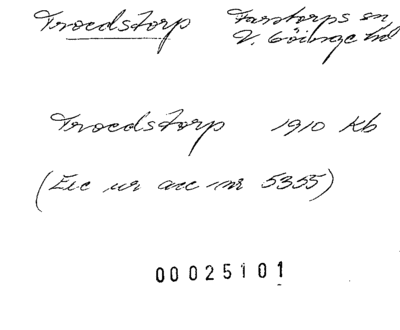 Troedstorp Farstorps sn
V. Göinge hd
Troedstorp 1910 Kb
(Exc ur acc nr 5355)
00025101